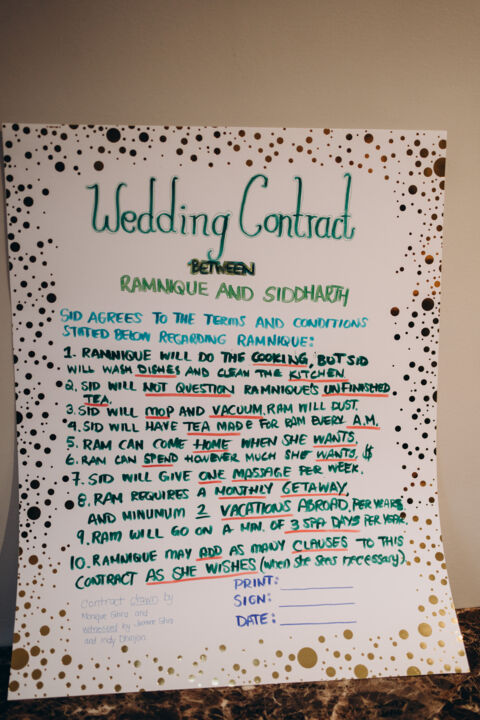 Wedding Contract
BETWEEN
RAMNIQUE AND SIDDHARTH
SID AGREES TO THE TERMS AND CONDITIONS
STATED BELOW REGARDING RAMNIQUE:
1. RAMNIQUE WILL DO THE COOKING, BUT SID
WILL WASH DISHES AND CLEAN THE KITCHEN.
2. SID WILL NOT QUESTION RAMNIQUE'S UNFINISHED
TEA.
3. SID WILL MOP AND VACUUM, RAM WILL DUST.
4. SID WILL HAVE TEA MADE FOR RAM EVERY A.M.
5. RAM CAN COME HOME WHEN SHE WANTS.
6. RAM CAN SPEND HOWEVER MUCH SHE WANTS, $
7. SID WILL GIVE ONE MASSAGE PER WEEK.
8. RAM REQUIRES A MONTHLY GETAWAY,
AND MINUMUM 2 VACATIONS ABROAD, PER YEAR.
9. RAM WILL GO ON A MIN. OF 3 SPA DAYS PER YEAR.
10. RAMNIQUE MAY ADD AS MANY CLAUSES TO THIS
CONTRACT AS SHE WISHES (when she sees necessary).
PRINT:
SIGN:
DATE:
Contract drawn by
Monique and
witnessed by
and Indy